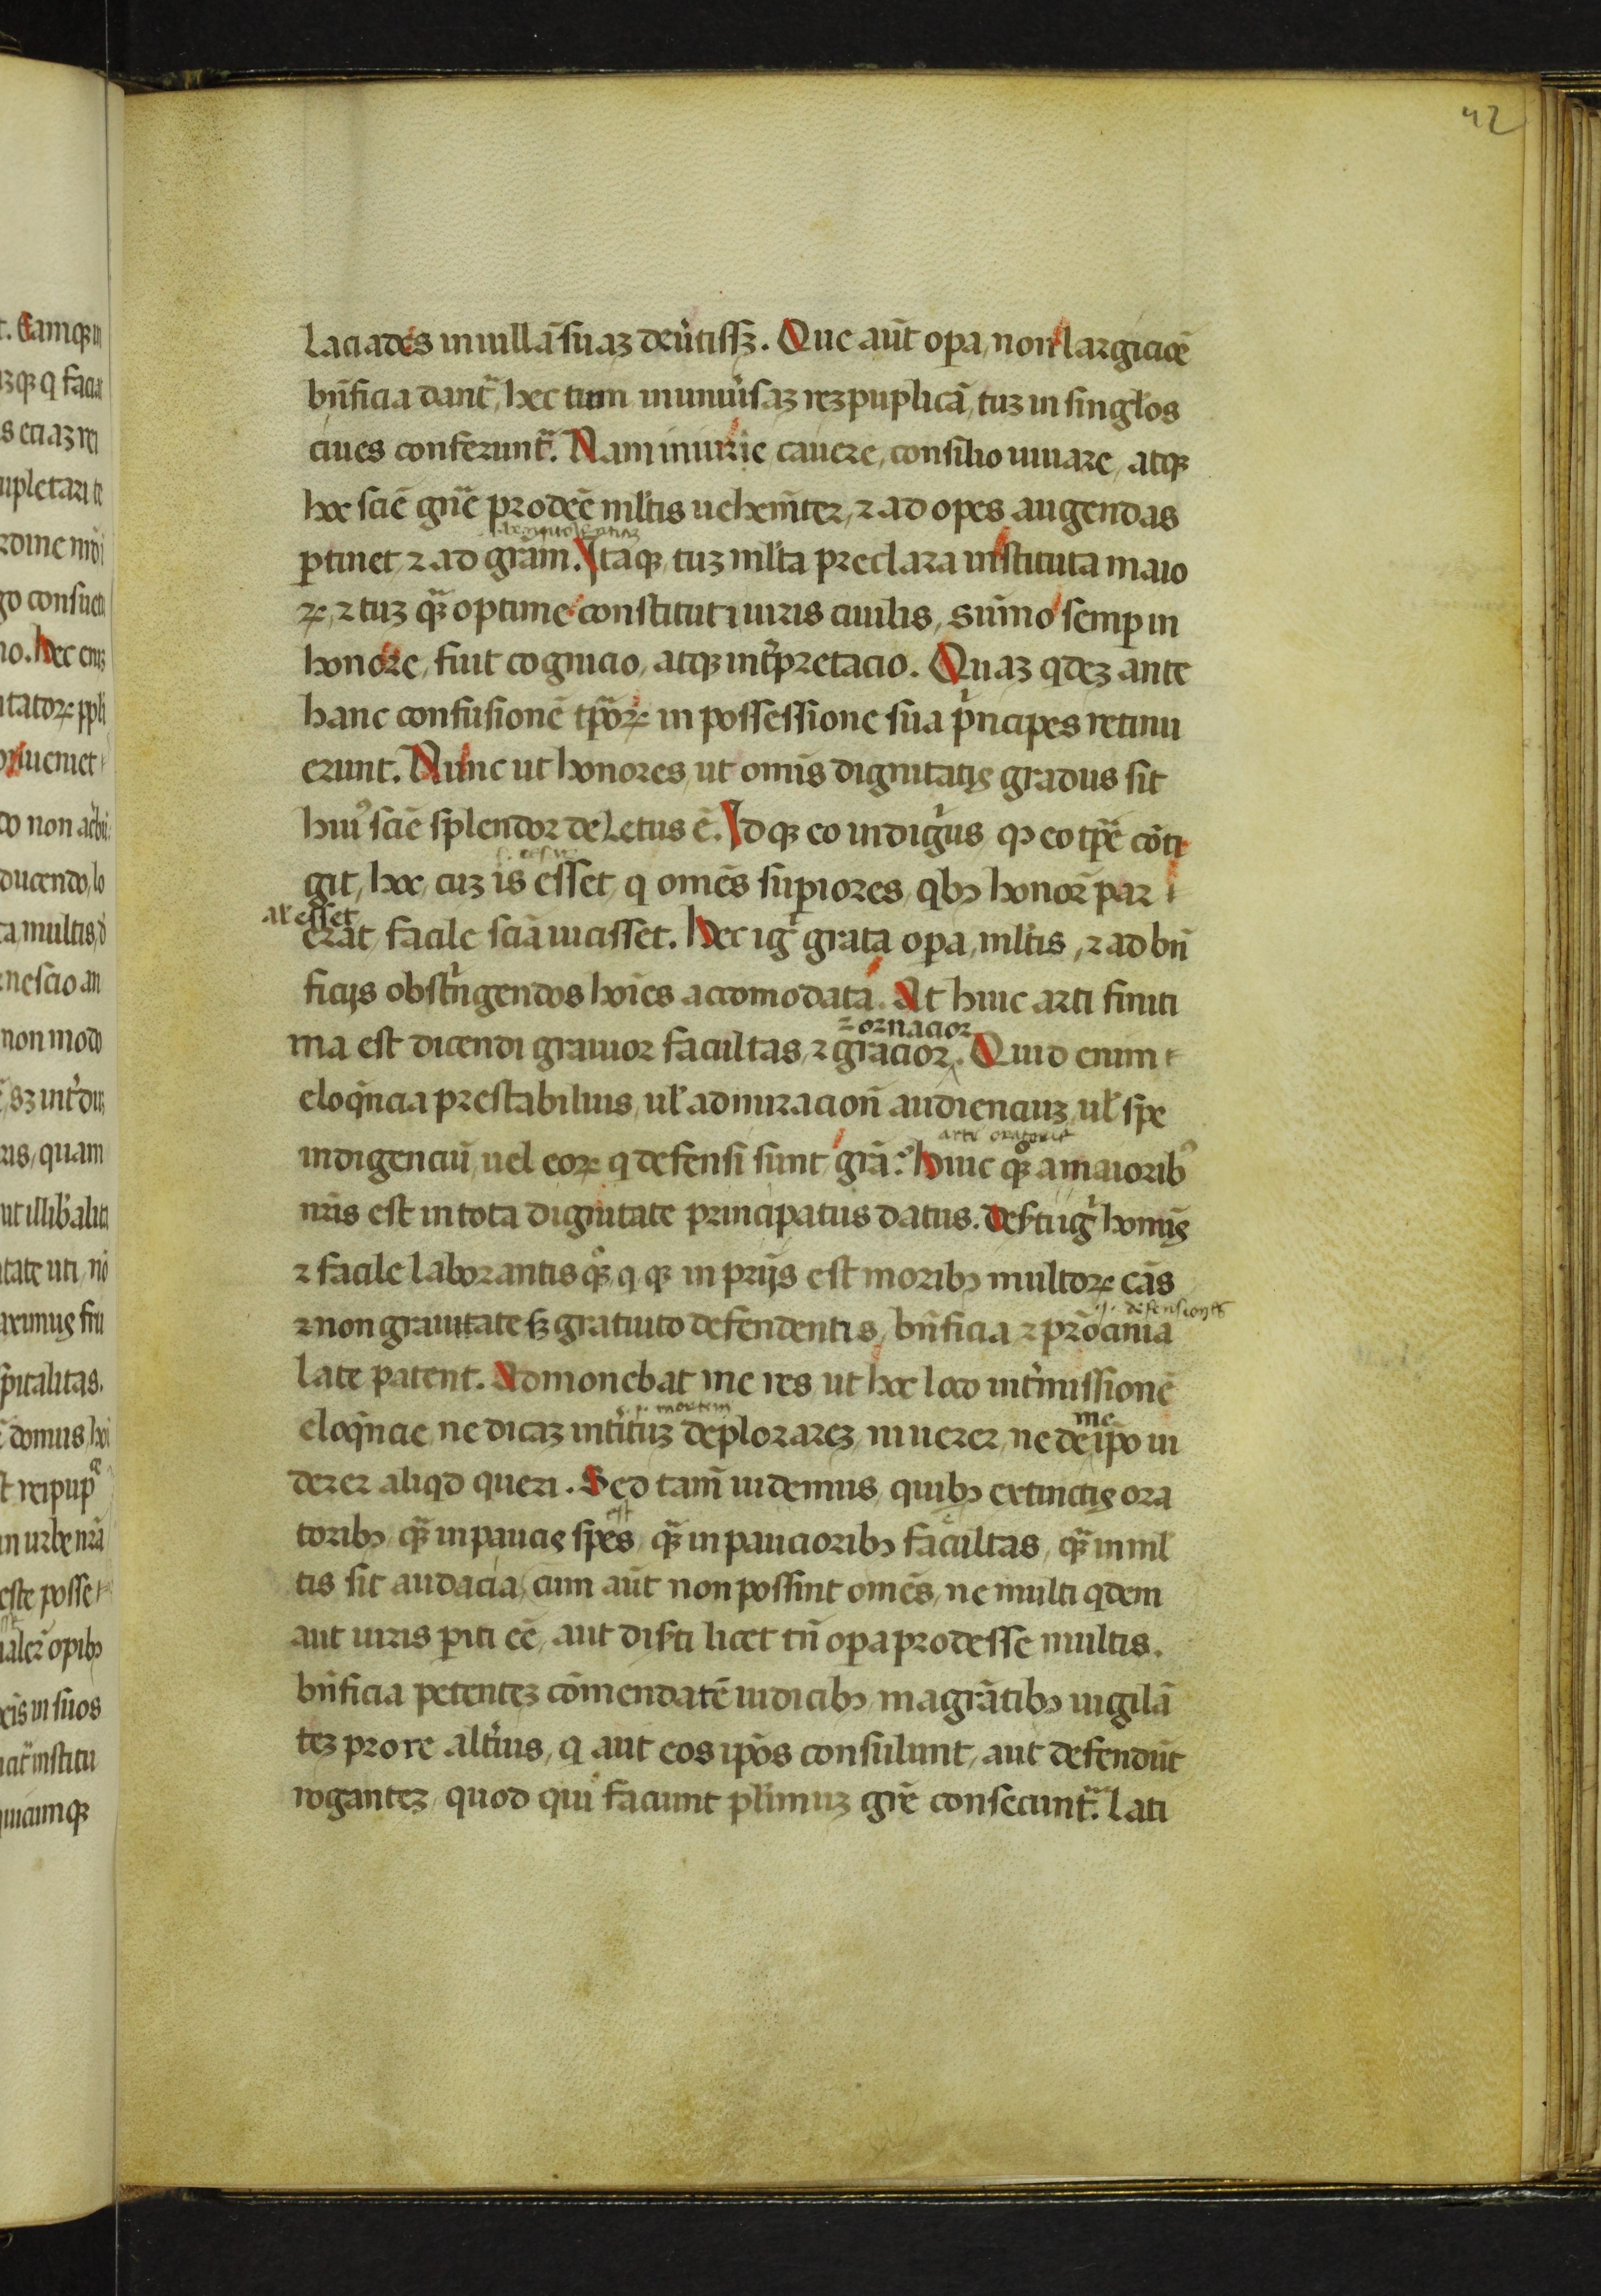 42
laciades in uillā suaz deūtissꝫ. Que aūt oꝑa, non largicioē
bn̄ficia dant̄, hec tum in uniūsaz rezpuplicā, tuz in singłos
ciues conferunt̄. Nam in iure cauere, consilio iuuare, atqꝫ
hoc sciē gn̄e prodeē ml̄tis uehemīter, ⁊ ad opes augendas
ꝑtinet, ⁊ ad grām. Itaqꝫ, tuz ml̄ta preclara instituta maio
ꝝ, ⁊ tuz qꝫ̄ optime constituti iuris ciuilis, sūmo semꝑ in
honore, fuit cognicio, atqꝫ int̄pretacio. Quaz qdez ante
hanc confusionē tꝑōꝝ in possessione sua pͥncipes retinu
erunt. Nunc ut honores, ut omīs dignitatis gradus sit
huiꝰ sciē splendor deletus ē. Idqꝫ eo indigͥus, ꝙ eo tꝑe cōti
git, hoc, cuz is esset, q omēs suꝑiores, qbꝫ honorē par
al' esset
erāt, facile sciā uicisset. Hec igͥ grata oꝑa, ml̄tis, ⁊ ad bn̄
ficijs obstͥngendos hoīes accomodata. At huic arti finiti
⁊ ornacior
ma est dicendi grauior facultas, ⁊ gracior. Quid enim
eloqn̄cia prestabilius, ul' admiracion̄ audienciuz, ul' spe
arti oratorie
indigenciū, uel eoꝝ q defensi sunt grā: Huic qꝫͦ a maioribꝰ
nr̄is est in tota dignitate principatus datus. Dis̄ti igͥ homīs
⁊ facile laborantis qꝫͦ, q qꝫ in pr̄ijs est moribꝫ multoꝝ cās
.i. defensiones
⁊ non grauitate sꝫ gratuito defendentis, bn̄ficia ⁊ prōcinia
late patent. Admonebat me res, ut hoc loco int̄missionē
mortem
eloqn̄cie, ne dicaz intͥtuz deplorarez, ni uerer, ne de īpo ui
me
derer aliqd queri. Sed tam̄ uidemus, quibꝫ extinctis ora
est
toribꝫ, qꝫ̄ in paucis spes, qꝫ̄ in paucioribꝫ facultas, qꝫ̄ in ml̄
tis sit audacia, cum aūt non possint omēs, ne multi qdem
aut iuris ꝑiti eē, aut dis̄ti licet tn̄ oꝑa prodesse multis.
bn̄ficia petentez cōmendatē iudicibꝫ, magrātibꝫ uigilā
tez pro re altͥius, q aut eos ip̄os consulunt, aut defendūt
rogantez, quod qui faciunt pl̄imuz gr̄e consecunt̄. Lati